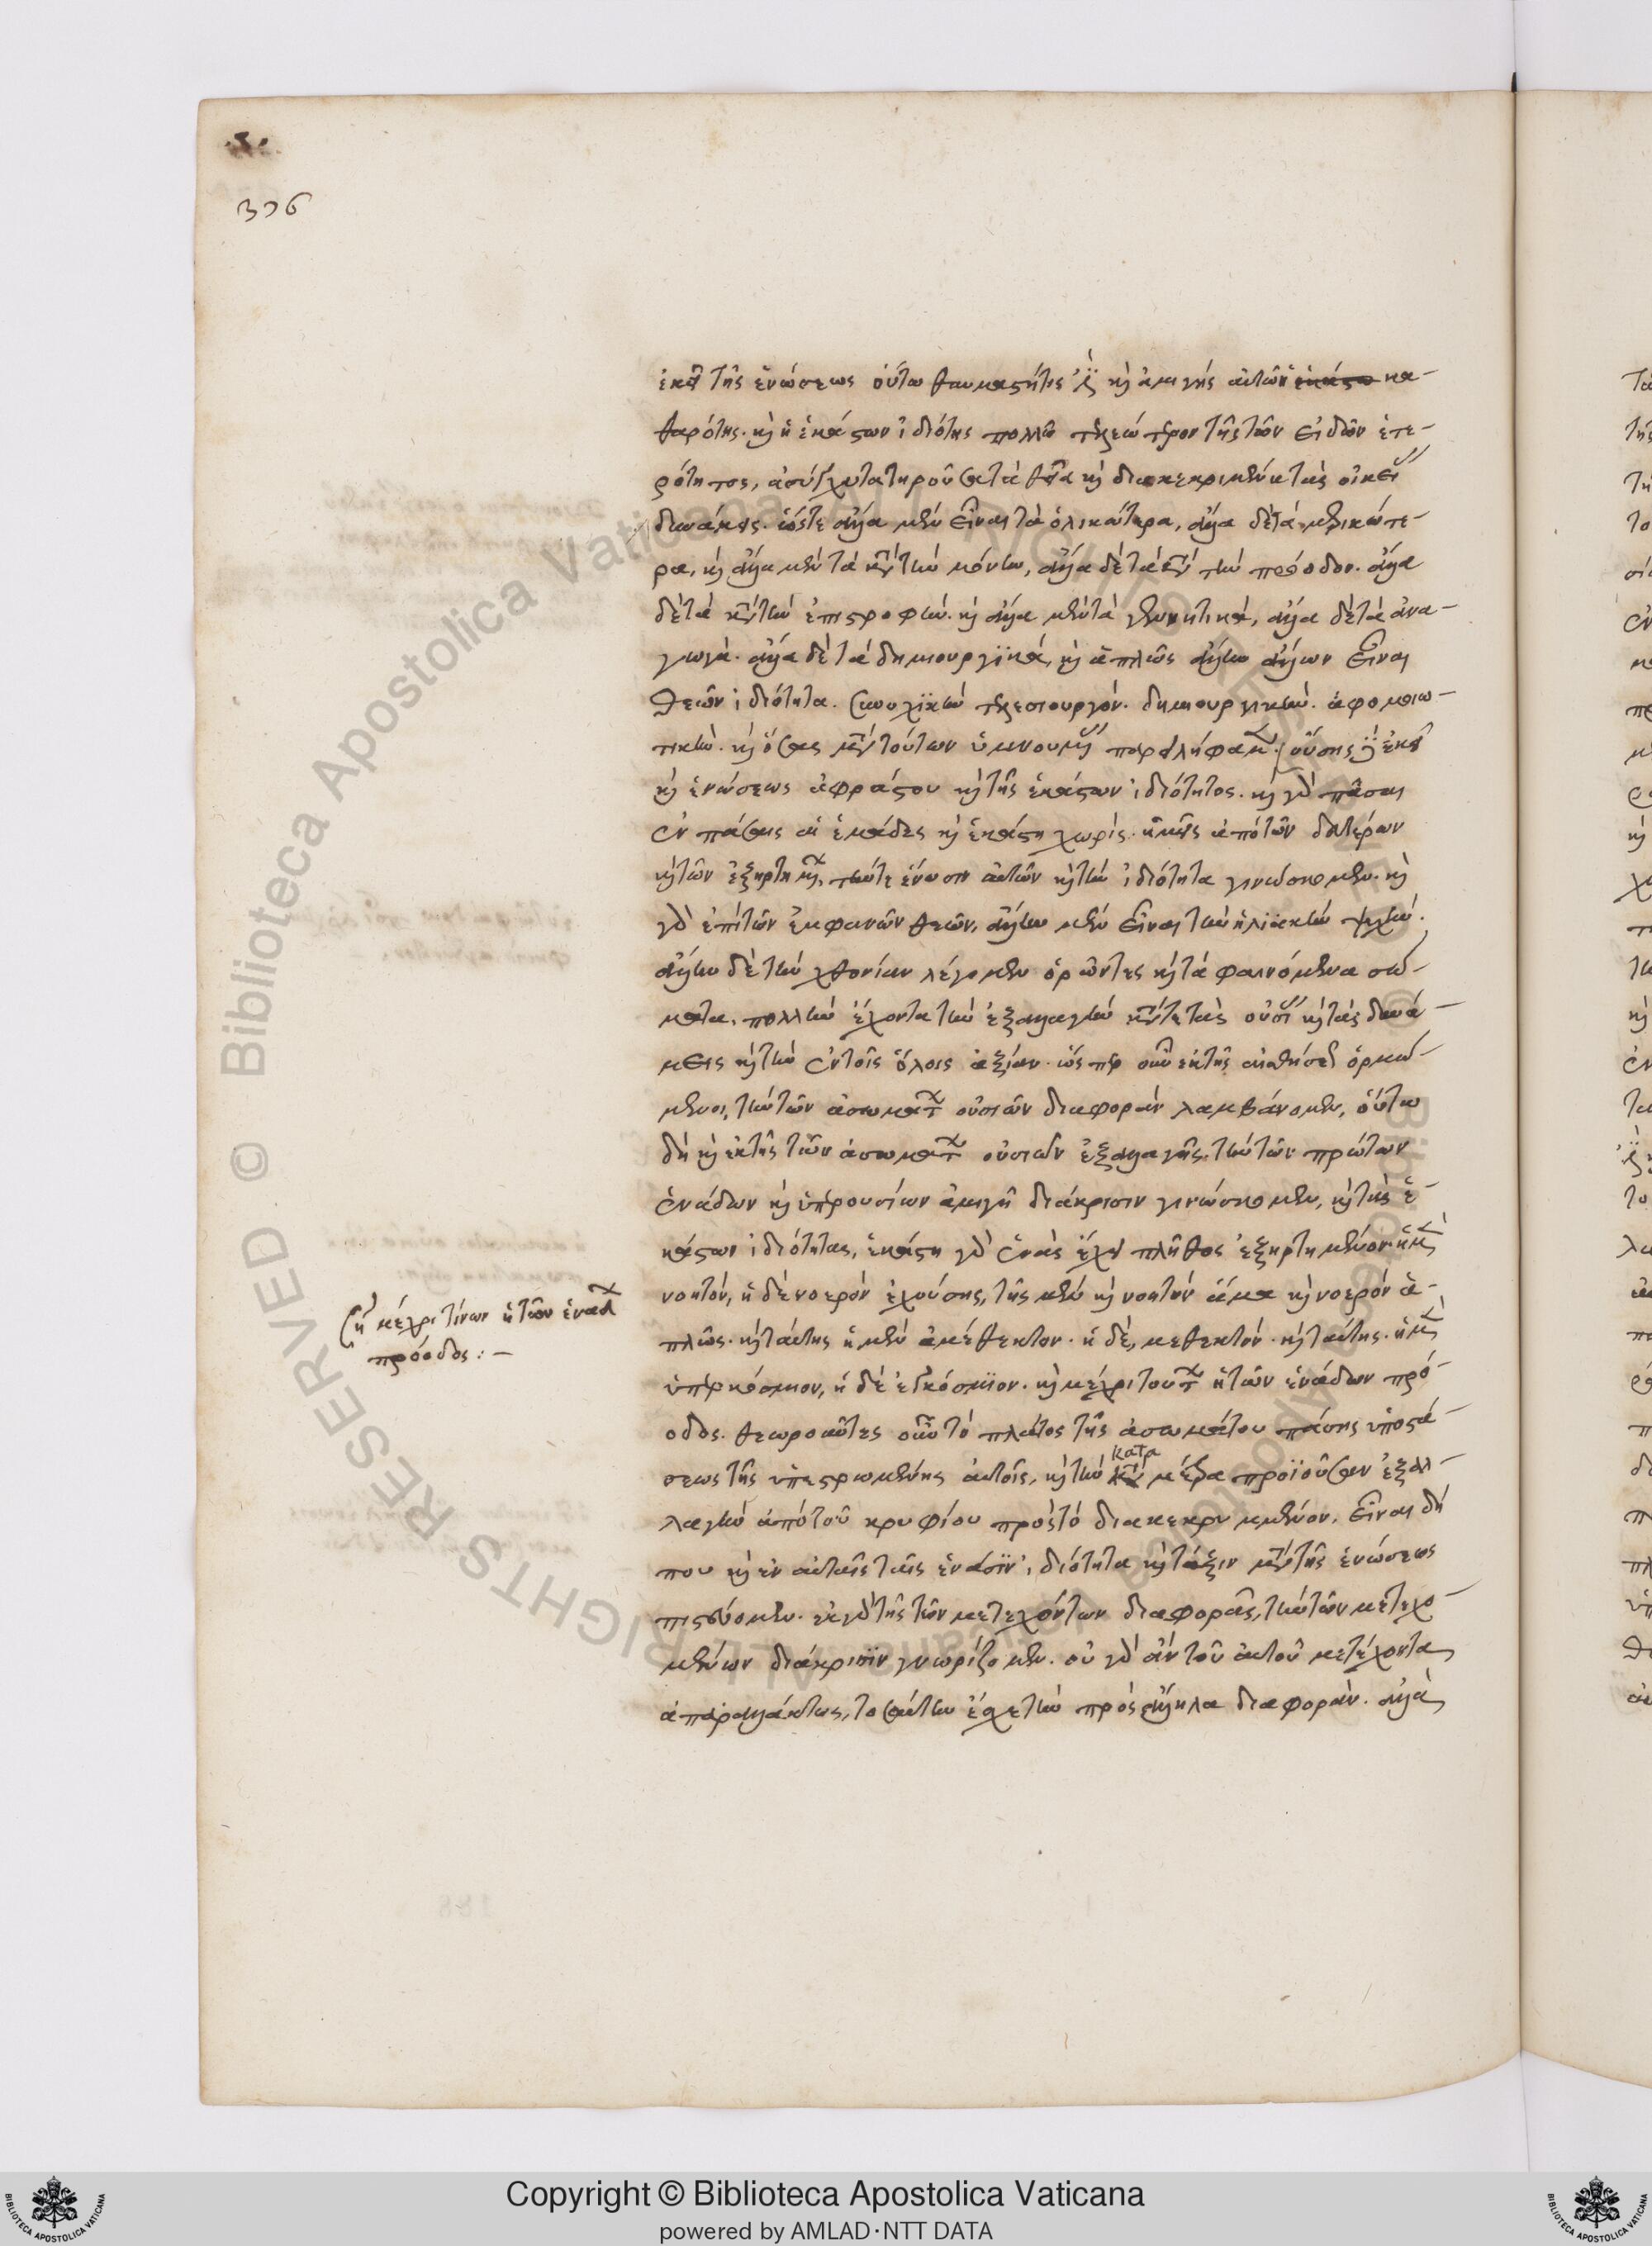 .ς.
306
ἐκεῖ τῆς ἑνώσεως οὕτω θαυμαστή τις ἐστὶ καὶ ἀμιγὴς αὐτῶν ἡ ἑκάστῳ κα-
θαρότης. καὶ ἡ ἑκάστων ἰδιότης πολλῶ τελεώτερον τῆς τῶν εἰδῶν ἑτε-
ρότητος, ἀσύγχυτα τηροῦσα τὰ θεῖα καὶ διακεκριμένα τὰς οἰκείας
δυνάμεις. ὥστε ἄλλα μὲν εἶναι τὰ ὁλικώτερα, ἄλλα δὲ τὰ μερικώτε-
ρα, καὶ ἄλλα μὲν τὰ κατὰ τὴν μόνην, ἄλλα δὲ τὰ κατὰ τὴν πρόοδον. ἄλλα
δὲ τὰ κατὰ τὴν ἐπιστροφήν. καὶ ἄλλα μὲν τὰ γεννητικά, ἄλλα δὲ τὰ ἀνα-
γωγὰ. ἄλλα δὲ τὰ δημιουργϊκά, καὶ ἁπλῶς ἄλλην ἄλλων εἶναι
θεῶν ἰδιότητα. συνοχϊκὴν τελεσιουργόν. δημιουργικήν. ἀφομοιω-
τικήν. καὶ ὅσας μετὰ τούτων ὑμνουμένας παρειλήφαμεν. οὔσης γὰρ ἐκεῖ
καὶ ἑνώσεως ἀφράστου καὶ τῆς ἑκάστων ἰδιότητος. καὶ γὰρ πᾶσαι
ἐν πάσαις αἱ ἑνάδες καὶ ἑκάστη χωρίς. ἡμεῖς ἀπὸ τῶν δευτέρων
καὶ τῶν ἐξηρτημένων, τήν τε ἕνωσιν αὐτῶν καὶ τὴν ἰδιότητα γινώσκομεν. καὶ
γὰρ ἐπὶ τῶν ἐμφανῶν θεῶν, ἄλλην μὲν εἶναι τὴν ἡλϊακὴν ψυχήν.
ἄλλην δὲ τὴν χθονίαν λέγομεν ὁρῶντες καὶ τὰ φαινόμενα σώ-
ματα, πολλὴν ἔχοντα τὴν ἐξαλλαγὴν κατά τε τὰς οὐσίας καὶ τὰς δυνά-
μεις καὶ τὴν ἐν τοῖς ὅλοις ἀξίαν. ὥσπερ οὖν ἐκ τῆς αἰσθήσεως ὁρμώ-
μενοι, τὴν τῶν ἀσωμάτων οὐσιῶν διαφορὰν λαμβάνομεν, οὕτω
δὴ καὶ ἐκ τῆς τῶν ἀσωμάτων οὐσιῶν ἐξαλλαγῆς, τὴν τῶν πρώτων
ἑνάδων καὶ ὑπερουσίων ἀμιγῆ διάκρισιν γινώσκομεν, καὶ τὰς ἑ-
κάστων ἰδιότητας, ἑκάστη γὰρ ἑνὰς ἔχει πλῆθος ἐξηρτημένον ἡ μὲν
νοητόν, ἡ δὲ νοερὸν ἐχούσης, τῆς μὲν καὶ νοητὸν ἅμα καὶ νοερὸν ἁ-
πλῶς. καὶ ταύτης ἡ μὲν ἀμέθεκτον. ἡ δὲ, μεθεκτόν. καὶ ταύτης. ἡ μὲν
ὑπερκόσμιον, ἡ δὲ ἐγκόσμϊον. καὶ μέχρι τούτων ἡ τῶν ἑνάδων πρό-
οδος. θεωροῦντες οὖν τὸ πλάτος τῆς ἀσωμάτου πάσης ὑποστά-
σεως τῆς ὑπεστρωμένης αὐταῖς, καὶ τὴν κατα μέτρα προϊοῦσαν ἐξαλ-
λαγὴν ἀπὸ τοῦ κρυφίου πρὸς τὸ διακεκριμμένον, εἶναι δή
που καὶ ἐν αὐταῖς ταῖς ἑνάσϊν ἰδιότητα καὶ τάξιν μετὰ τῆς ἑνώσεως
πιστεύομεν. ἐκ γὰρ τῆς τῶν μετεχόντων διαφορᾶς, τὴν τῶν μετεχο-
μένων διάκρισϊν γνωρίζομεν. οὐ γὰρ ἂν τοῦ αὐτοῦ μετέχοντα
ἀπαραλλάκτως, τοσαύτην ἔσχε τὴν πρὸς ἄλληλα διαφοράν. ἀλλὰ
ὅτι μέχρι τίνων ἡ τῶν ἑνάδων
πρόοδος:-
Copyright © Biblioteca Apostolica Vaticana
powered by AMLAD·NTT DATA